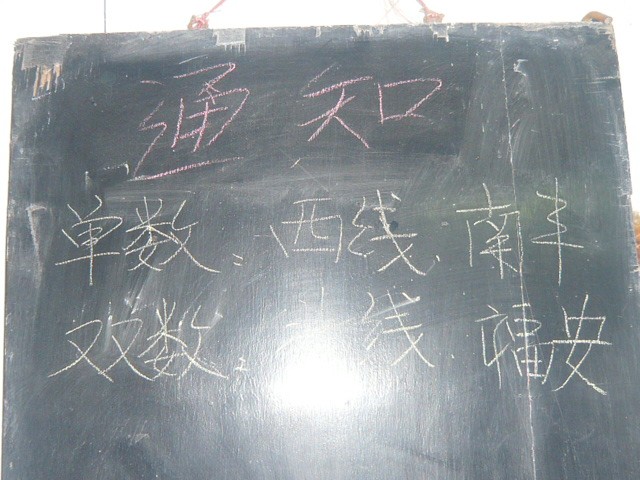 通知
单数:西线、南丰
双数:线 福安